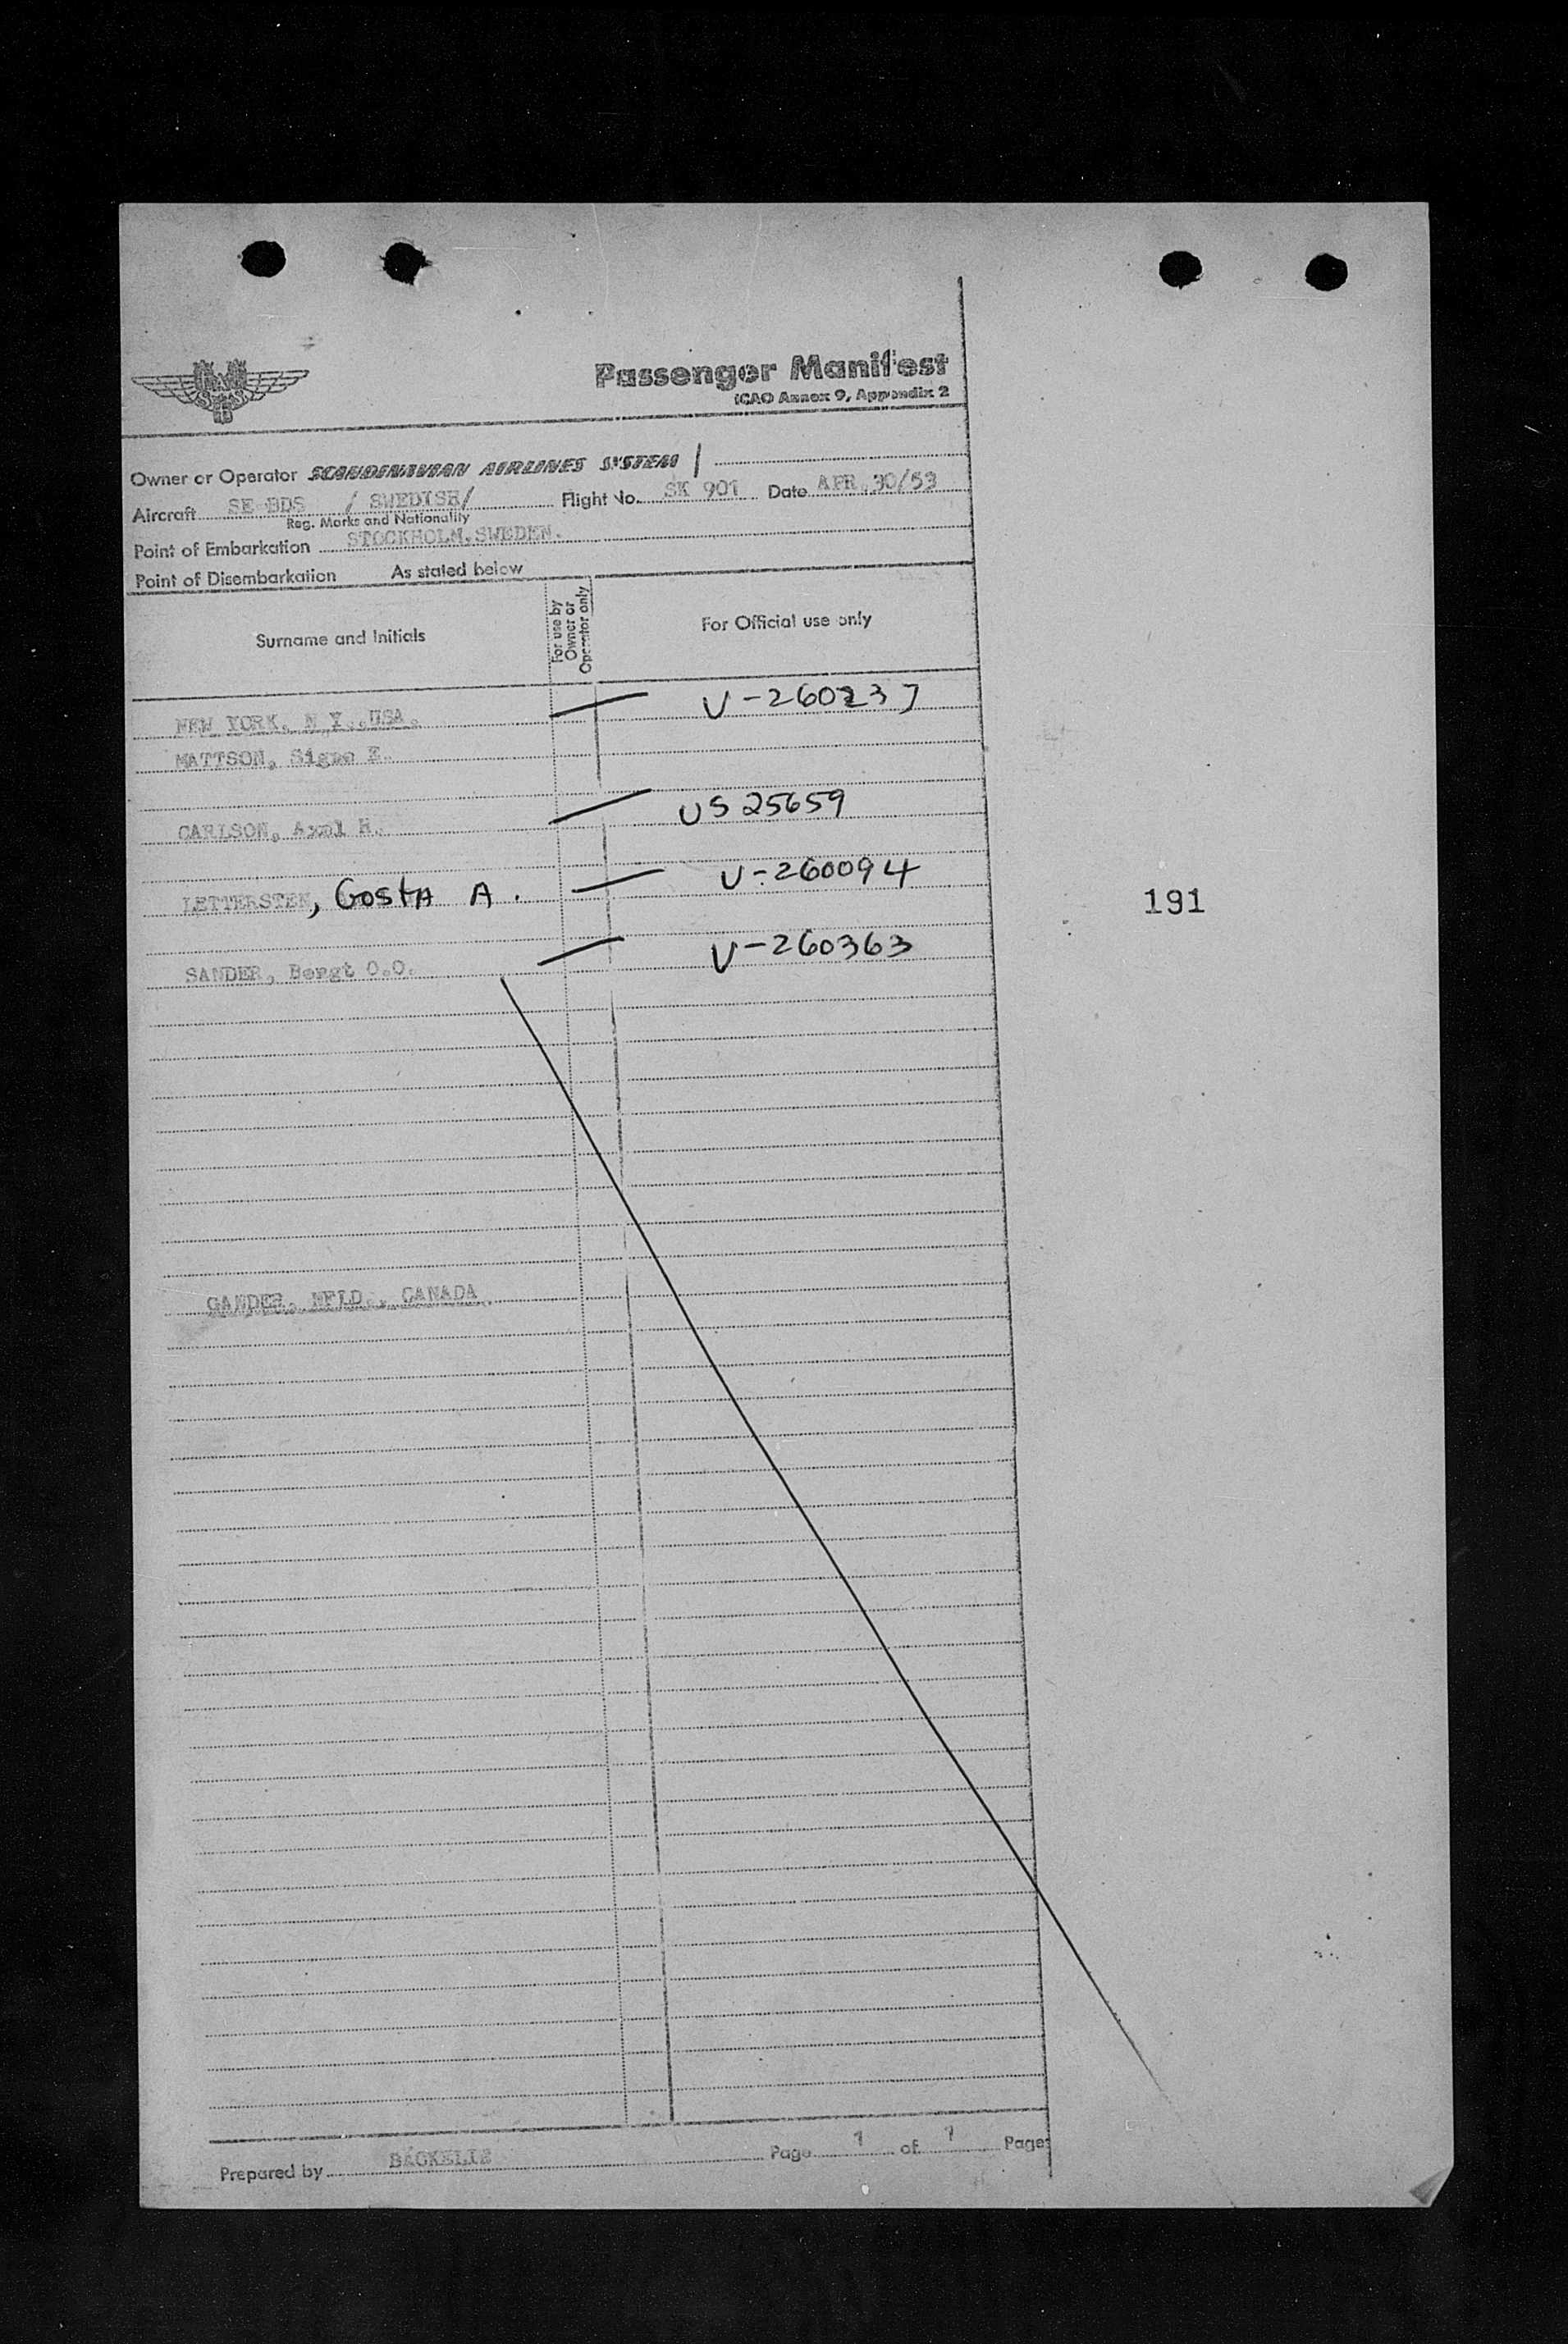 SAS
Passenger Manifest
ICAO Annex 9, Appendix 2
Owner or Operator SCANDINAVIAN AIRLINES SYSTEM
Aircraft SE-BDS / SWEDISH/ Flight No. SK 901 Date APR 30/53
Reg. Marks and Nationality
Point of Embarkation STOCKHOLM.SWEDEN.
Point of Disembarkation As stated below
Surname and Initials For use by Owner or Operator only For Official use only
NEW YORK, N Y.,USA. V-260237
MATTSON, Signe E.
CARLSON, Axel H. US 25659
LETTERSTEN, Gosta A. V-260094
191
SANDER, Bengt O.O. V-260363
GANDER, NFLD., CANADA.
Prepared by Page 1 of 1 Pages